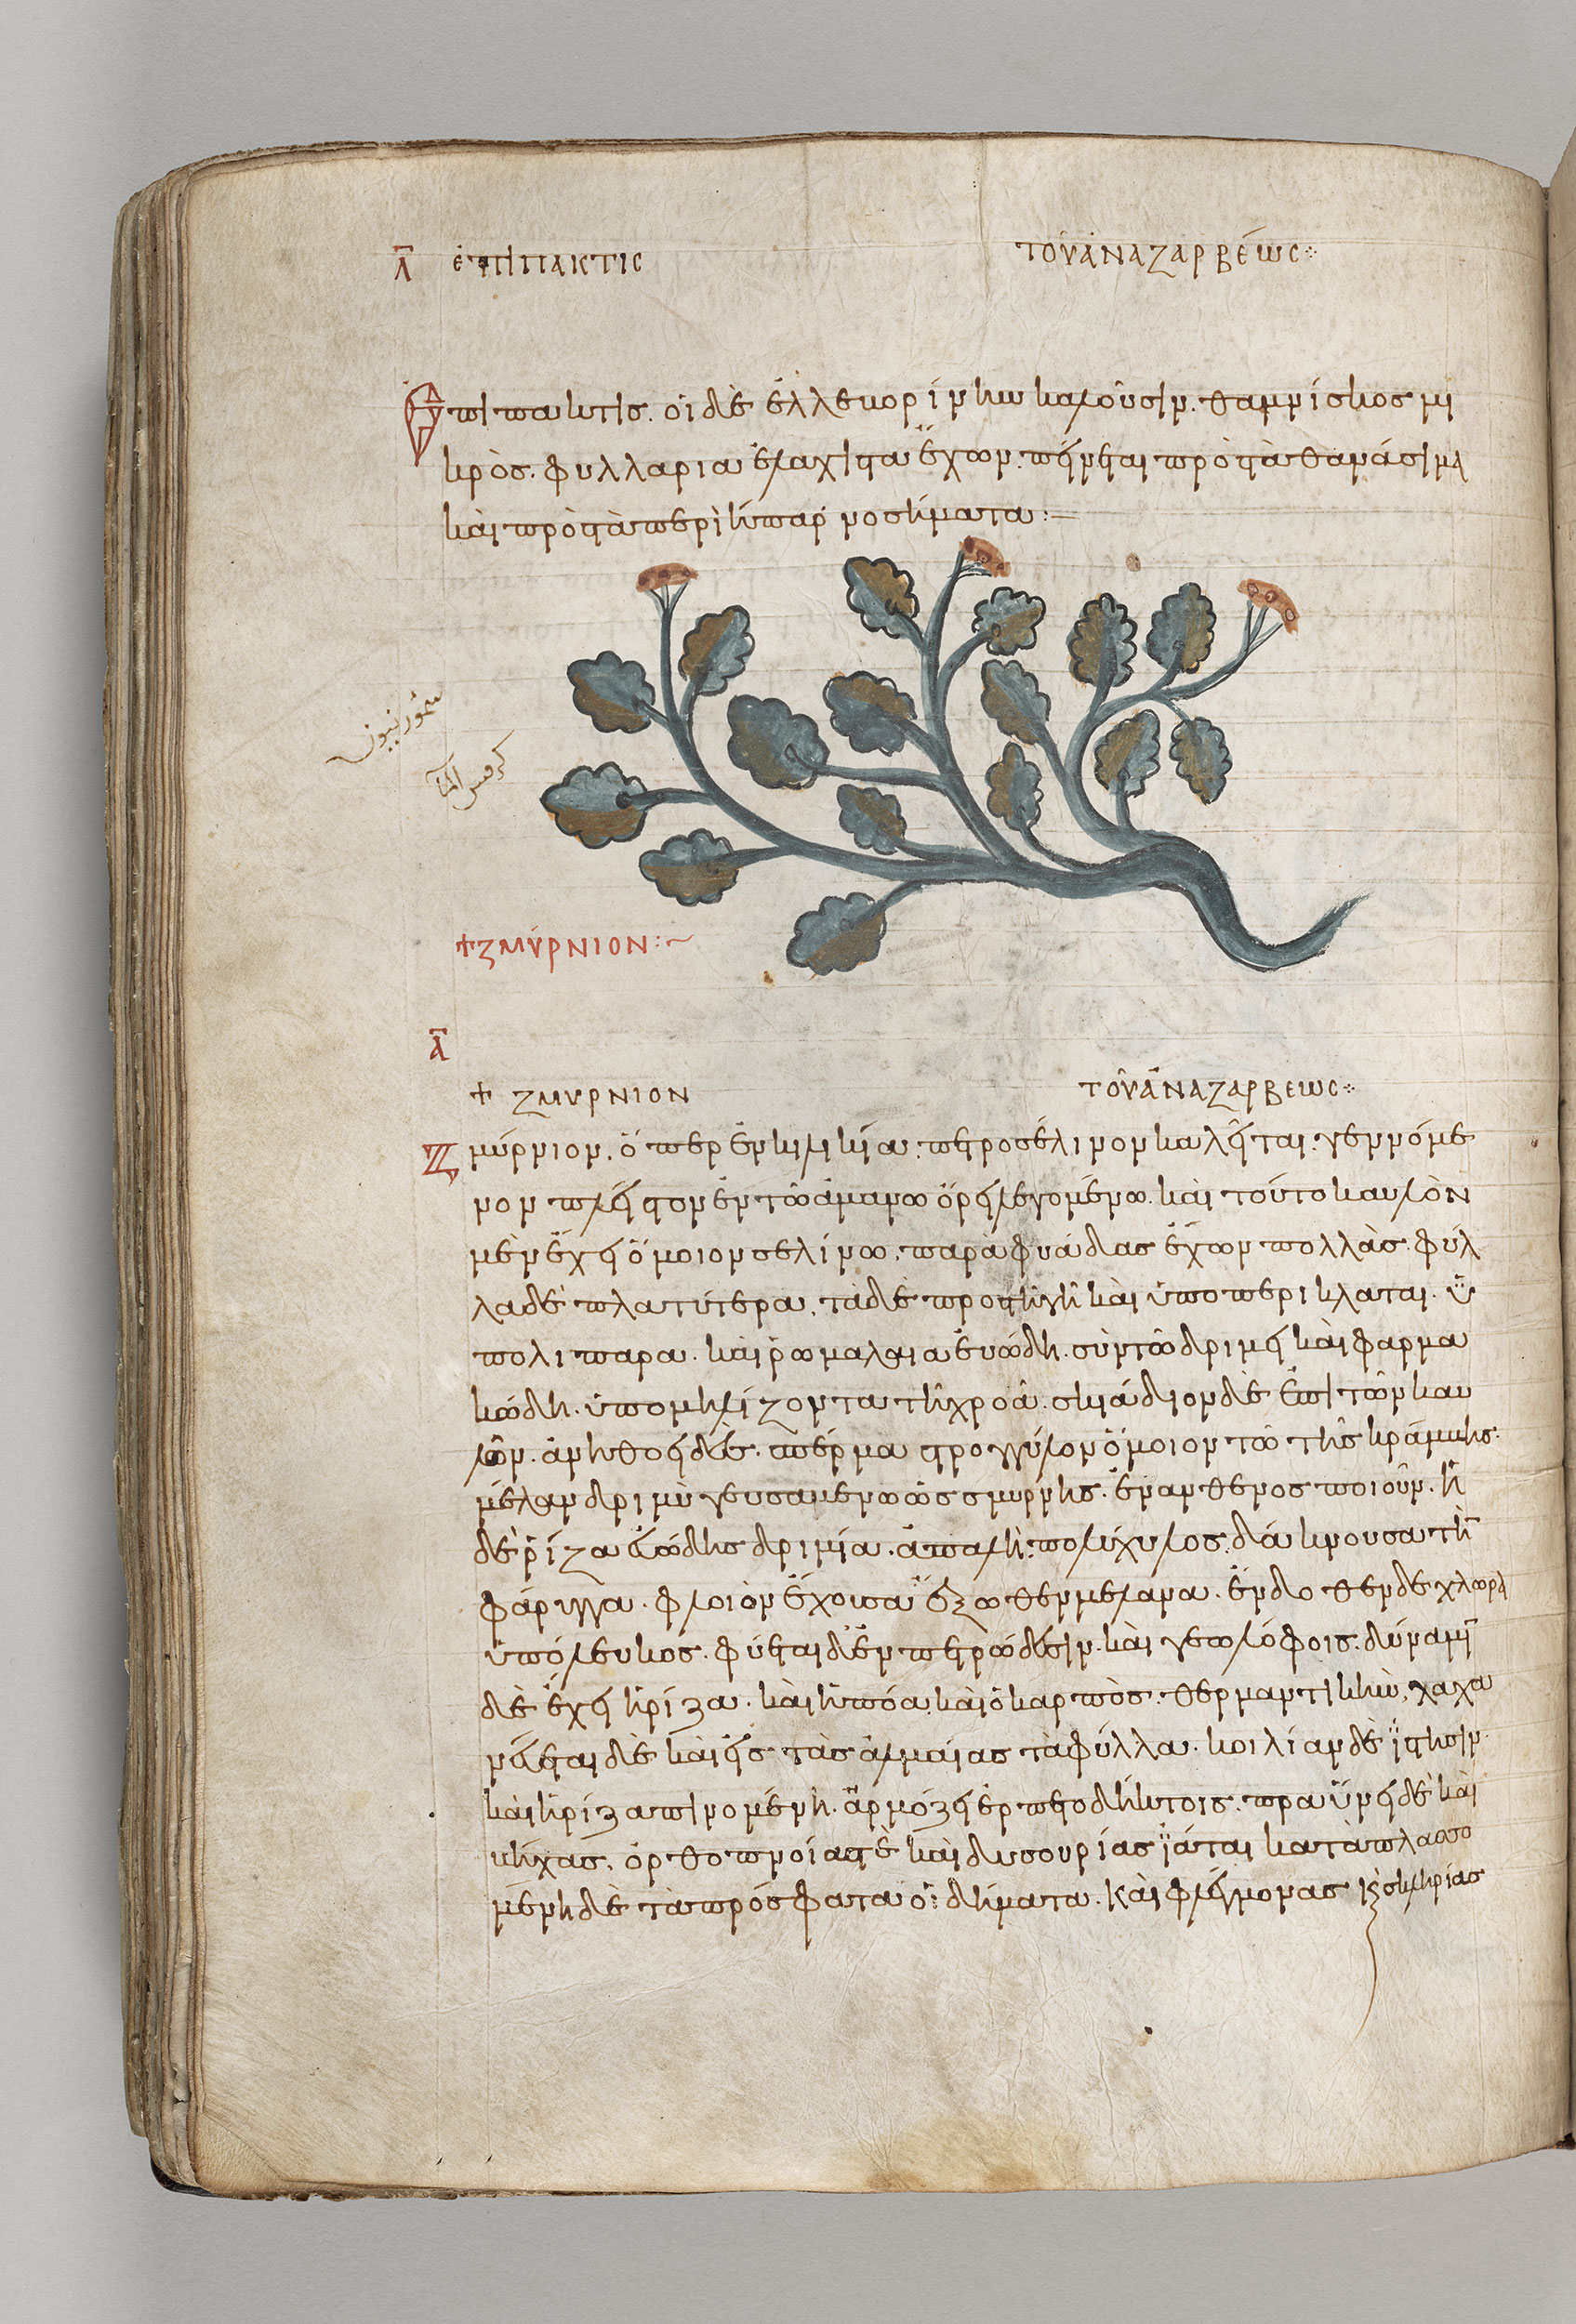 Λ ἐπιπακτις τοῦ ἀναζαρβέως
Ἐπιπακτις. οἱ δὲ ἐλλεβορίνην καλοῦσιν. θαμνίσκος μι
κρὸς. φυλλαρια ἐλαχιστα ἔχων. πίνεται πρὸς τὰ θανάσιμα
καὶ πρὸς τὰ περὶ ἧπαρ νοσήματα:—
سمورنيون
كرفس الما
+ ζμύρνιον:~
Α
+ ζμυρνιον τοῦ ἀναζαρβεως
Ζμύρνιον, ὅπερ ἐν κιλικία πετροσέλινον καλεῖται. γεννόμε
νον πλεῖστον ἐν τῶ ἀμανω ὄρει λεγομένω. καὶ τοῦτο καυλὸν
μὲν ἔχει ὅμοιον σελίνω, παρὰφυάδας ἔχων πολλὰς. φύλ
λα δὲ πλατύτερα, τὰ δὲ προς τῆ γῆ καὶ ὑποπερικλαται. ὑ
πολιπαρα. καὶ ῥωμαλαια εὐώδη. σὺν τῶ δριμεῖ καὶ φαρμα
κώδη. ὑπομηλίζοντα τῆ χροᾶ. σκιάδιον δὲ ἐπι τῶν καυ
λῶν. ἀνηθοειδὲς. σπέρμα στρογγύλον ὅμοιον τῶ τῆς κράμβης.
μέλαν δριμὺ γευσαμενω ὡς σμυρνης. ἐναν θενος ποιοῦν. ἡ
δὲ ῥίζα εὐώδης δριμία. ἁπαλὴ. πολύχυλος. δάκνουσα τὴν
φάρυγγα. φλοιὸν ἔχουσα ἔξωθεν μελανα. ἔνδοθεν δε χλωρα
ὑπόλευκος. φύεται δὲ ἐν πετρώδεσιν. καὶ γεωλόφοις. δύναμιν
δὲ ἔχει ἡ ρίζα. καὶ ἡ πόα καὶ ὁ καρπὸς. θερμαντικὴν, χαχα
νεύεται δὲ καὶ εἰς τὰς ἀλμαίας τὰ φύλλα. κοιλίαν δὲ ἵστησιν.
καὶ ἡ ρίζα πινομένη. ἁρμόζει ἑρπετοδήκτοις. πραΰνει δὲ καὶ
βῆχας, ὀρθοπνοίας τὲ καὶ δυσουρίας ἰᾶται καταπλασσο
μένη δὲ τὰ πρόσφατα οἰδήματα. καὶ φλέγμονας καὶ σκληρίας